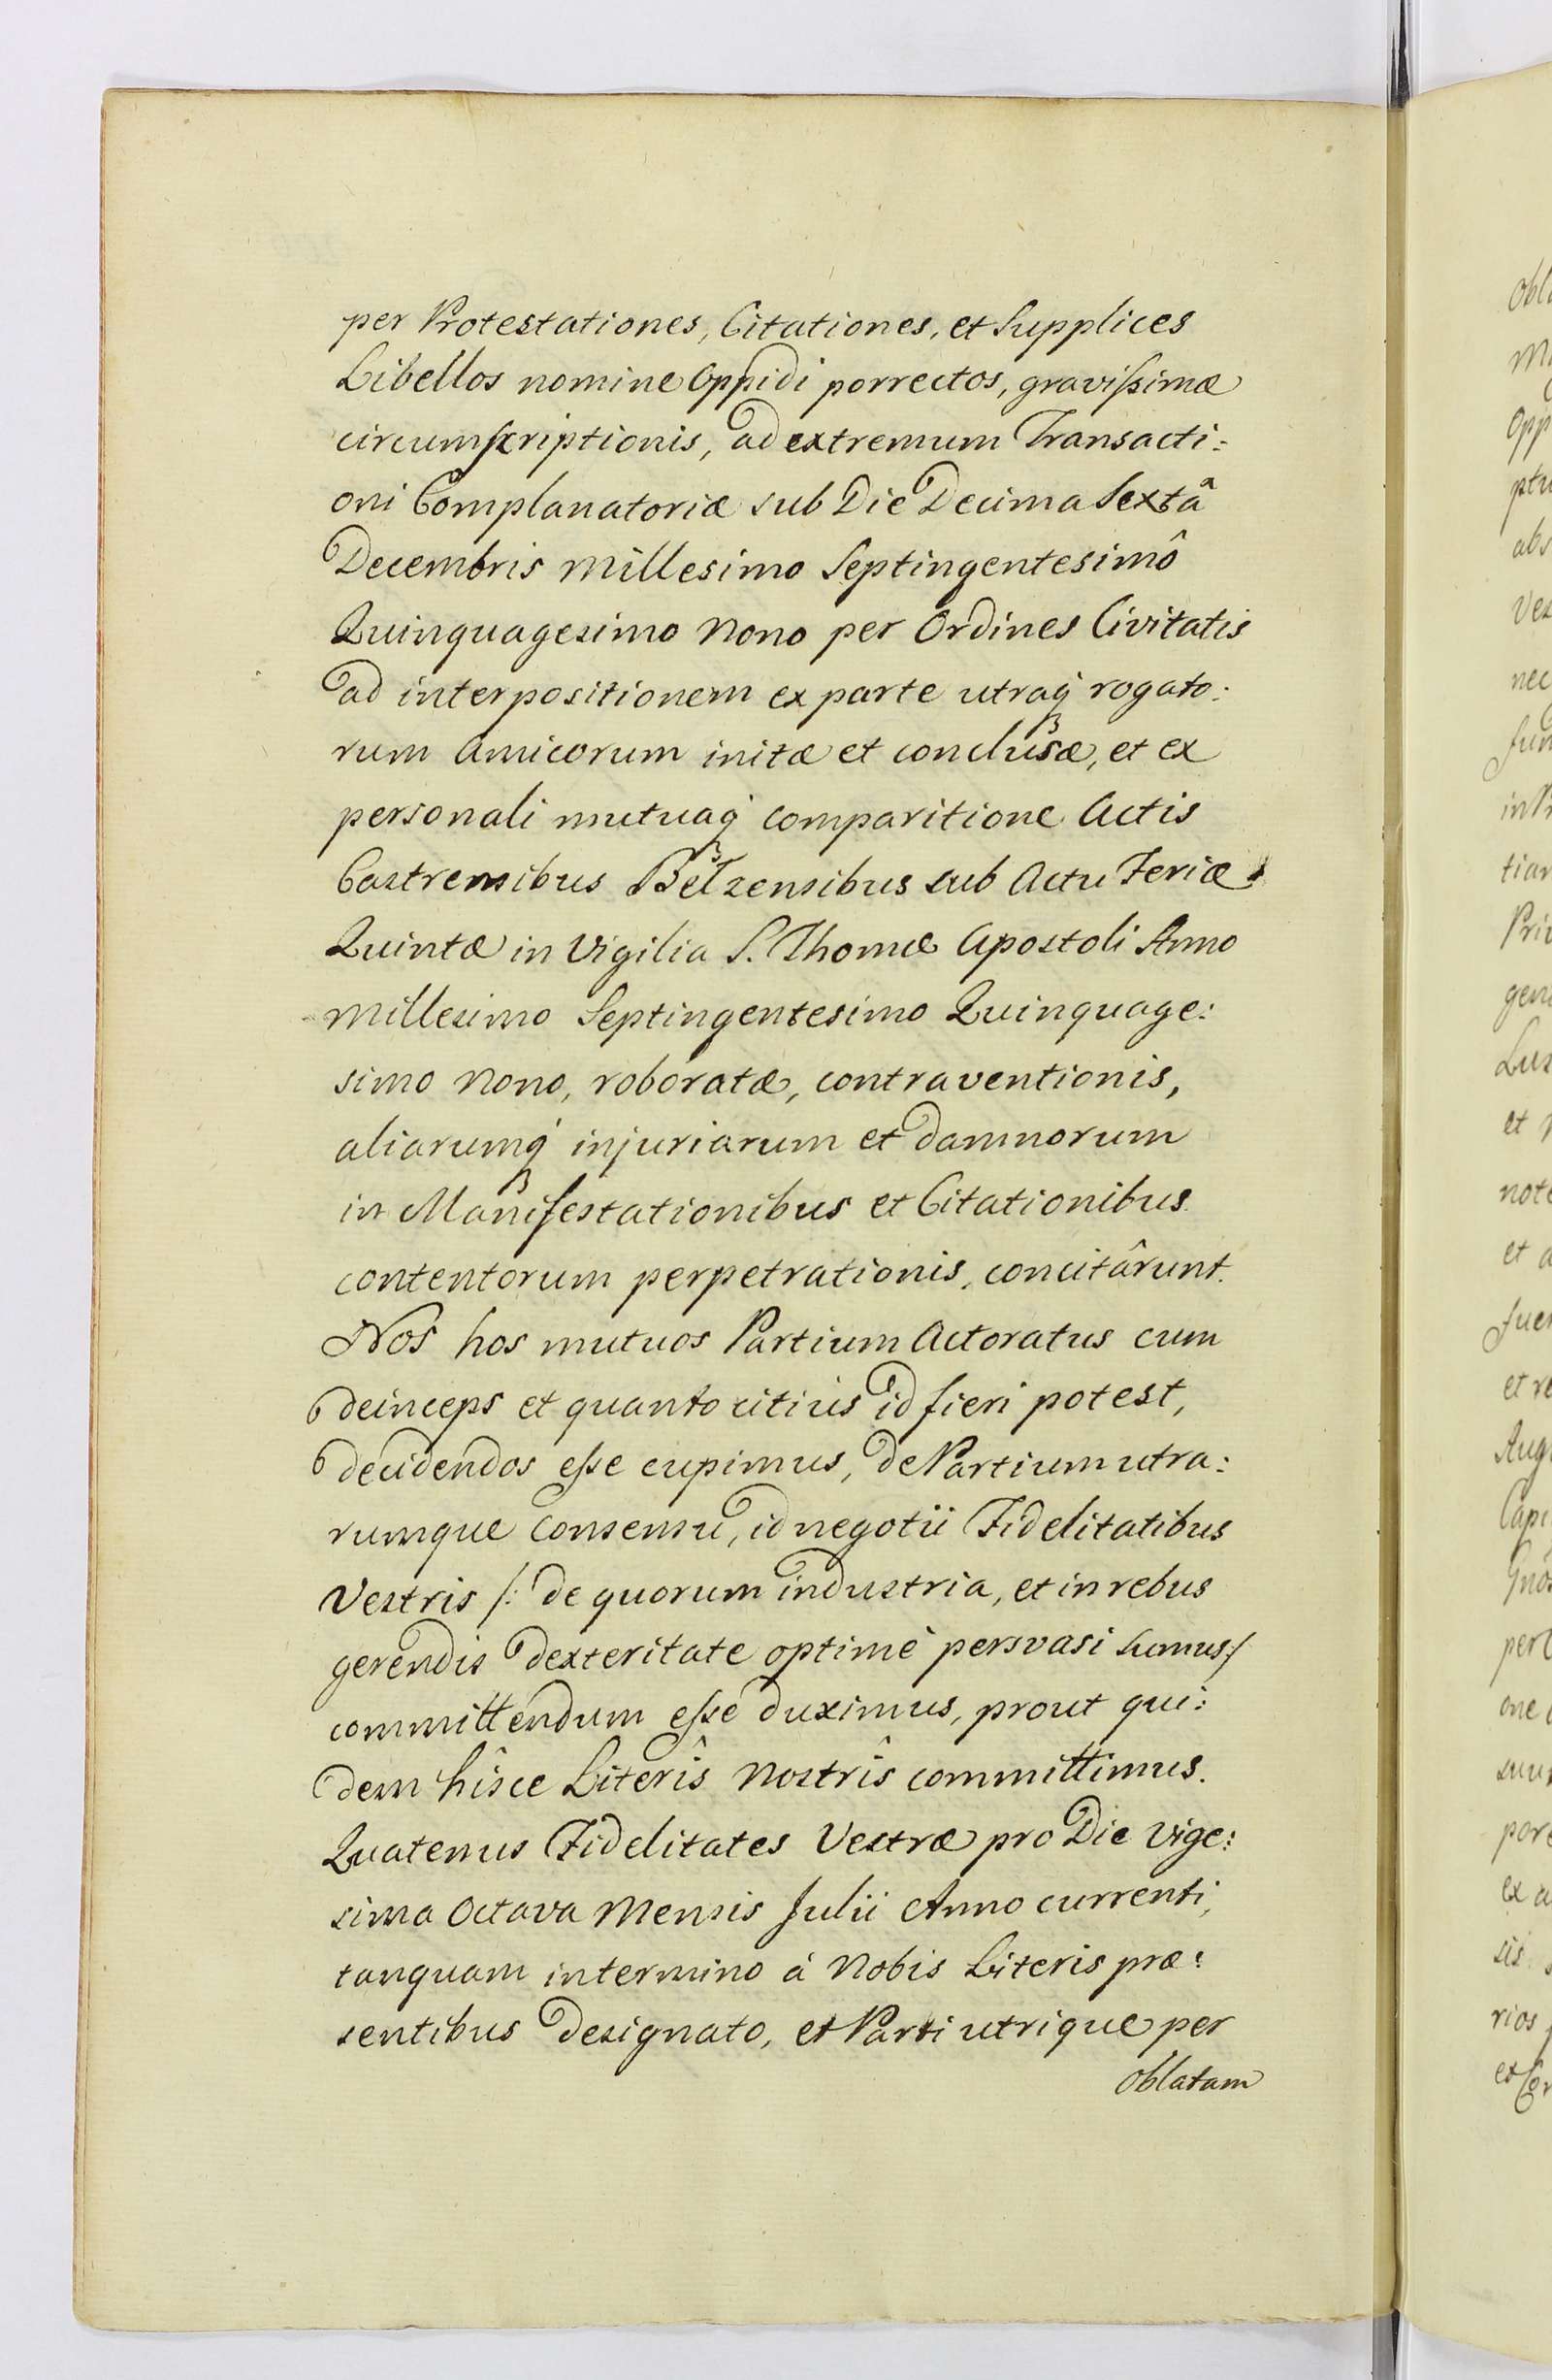 per Protestationes, Citationes, et Supplices
Libellos nomine Oppidi porrectos, gravißimæ
circumscriptionis, ad extremum Transacti:
oni Complanatoriæ sub Die Decima Sextâ
Decembris Millesimo Septingentesimô
Quinquagesimo Nono per Ordines Civitatis
ad interpositionem ex parte utraq́ rogato:
rum Amicorum initæ et conclusæ, et ex
personali mutuaq́ comparitione Actis
Castrensibus Belzensibus sub Actu Feriæ
Quintæ in Vigilia S. Thomæ Apostoli Anno
Millesimo Septingentesimo Quinquage:
simo Nono, roboratæ, contraventionis,
aliarumq́ injuriarum et damnorum
in Manifestationibus et Citationibus
contentorum perpetrationis, concitârunt.
Nos hos mutuos Partium Actoratus cum
deinceps et quanto citius id fieri potest,
decidendos eße cupimus, de Partium utra:
rumque Consensu, id negotii Fidelitatibus
Vestris /: de quorum industria, et in rebus
gerendis dexteritate optimè persvasi sumus :/
committendum eße duximus, prout qui:
dem hîsce Literîs Nostrîs committimus.
Quatenus Fidelitates Vestræ pro Die Vige:
sima Octava Mensis Julii Anno currenti,
tanquam in termino à Nobis Literis præ:
sentibus designato, et Parti utrique per
oblatam